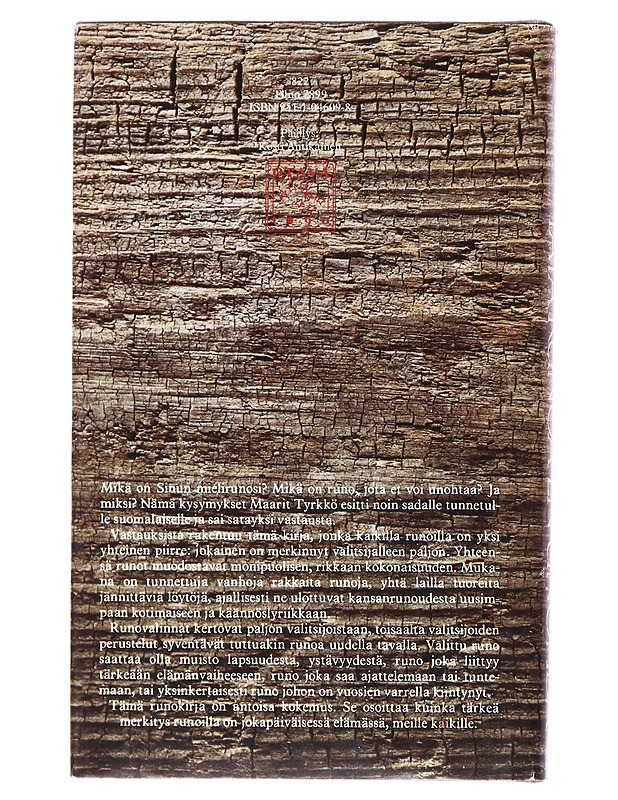 822
ISBN 951-1-04609-8
Päällys:
Kosti Antikainen
OTAVA
Mikä on Sinun mielirunosi? Mikä on runo, jota et voi unohtaa? Ja
miksi? Nämä kysymykset Maarit Tyrkkö esitti noin sadalle tunnetul-
le suomalaiselle ja sai satayksi vastausta.
Vastauksista rakentuu tämä kirja, jonka kaikilla runoilla on yksi
yhteinen piirre: jokainen on merkinnyt valitsijalleen paljon. Yhteen-
sä runot muodostavat monipuolisen, rikkaan kokonaisuuden. Muka-
na on tunnettuja vanhoja rakkaita runoja, yhtä lailla tuoreita
jännittäviä löytöjä, ajallisesti ne ulottuvat kansanrunoudesta uusim-
paan kotimaiseen ja käännöslyriikkaan.
Runovalinnat kertovat paljon valitsijoistaan, toisaalta valitsijoiden
perustelut syventävät tuttuakin runoa uudella tavalla. Valittu runo
saattaa olla muisto lapsuudesta, ystävyydestä, runo joka liittyy
tärkeään elämänvaiheeseen, runo joka saa ajattelemaan tai tunte-
maan, tai yksinkertaisesti runo johon on vuosien varrella kiintynyt.
Tämä runokirja on antoisa kokemus. Se osoittaa kuinka tärkeä
merkitys runoilla on jokapäiväisessä elämässä, meille kaikille.